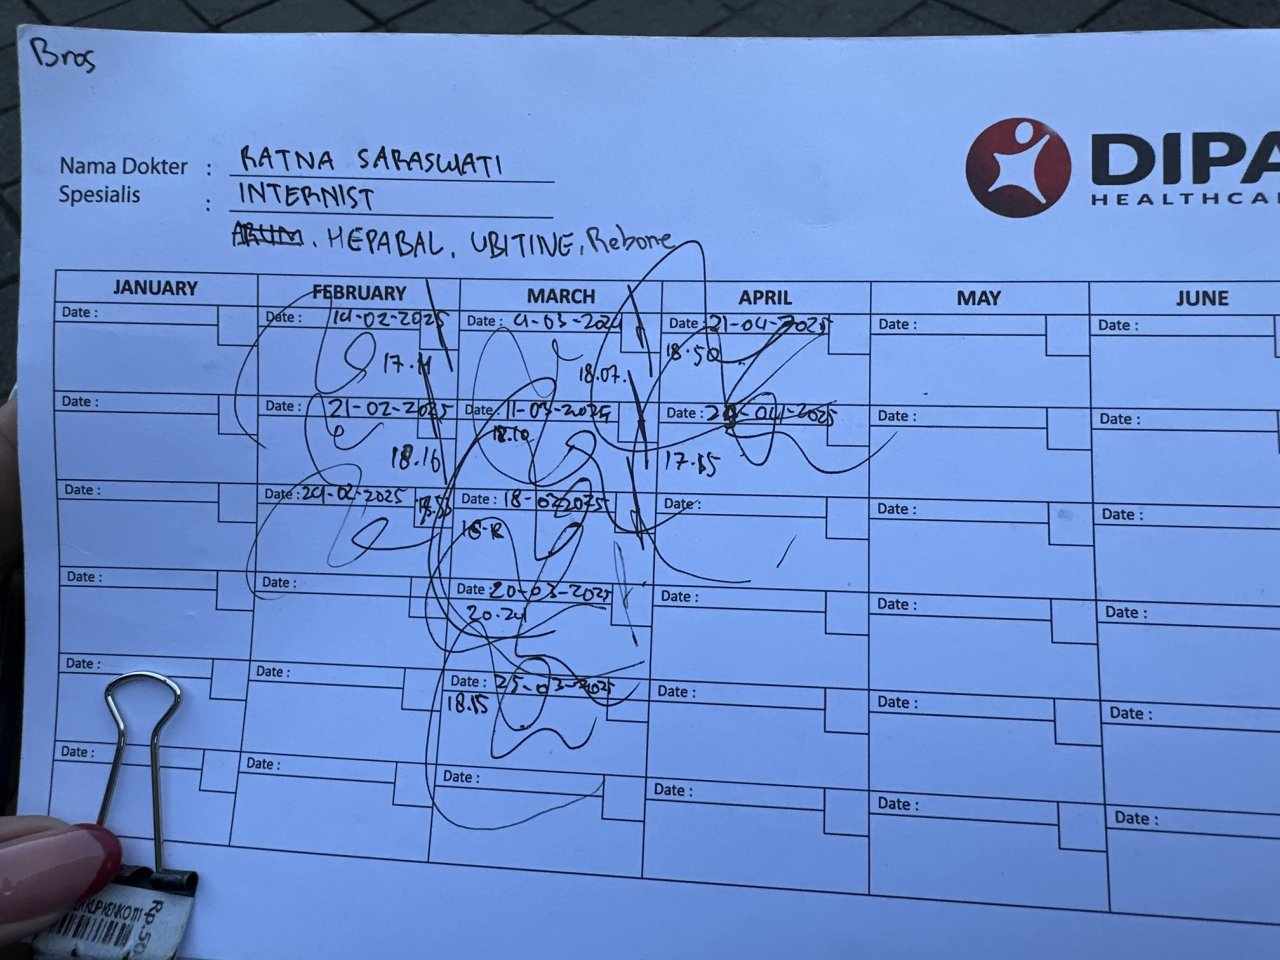 Bros
DIPA
HEALTHCA
Nama Dokter : RATNA SARASWATI
Spesialis : INTERNIST
HEPABAL, UBITINE, Rebone
JANUARY FEBRUARY MARCH APRIL MAY JUNE
Date : Date : 14-02-2025 Date : 4-03-202 Date : 21-04-2025 Date : Date :
17.11 18.07. 18.50
Date : Date : 21-02-2025 Date : 11-03-2025 Date : -04-2025 Date : Date :
18.16 18.10 17.15
Date : Date : 24-02-2025 Date : 18-03-2025 Date : Date : Date :
Date : Date : Date : 20-03-2025 Date : Date : Date :
20.24
Date : Date : Date : 25-03-2025 Date : Date : Date :
18.15
Date : Date : Date : Date : Date : Date :
Rp.50